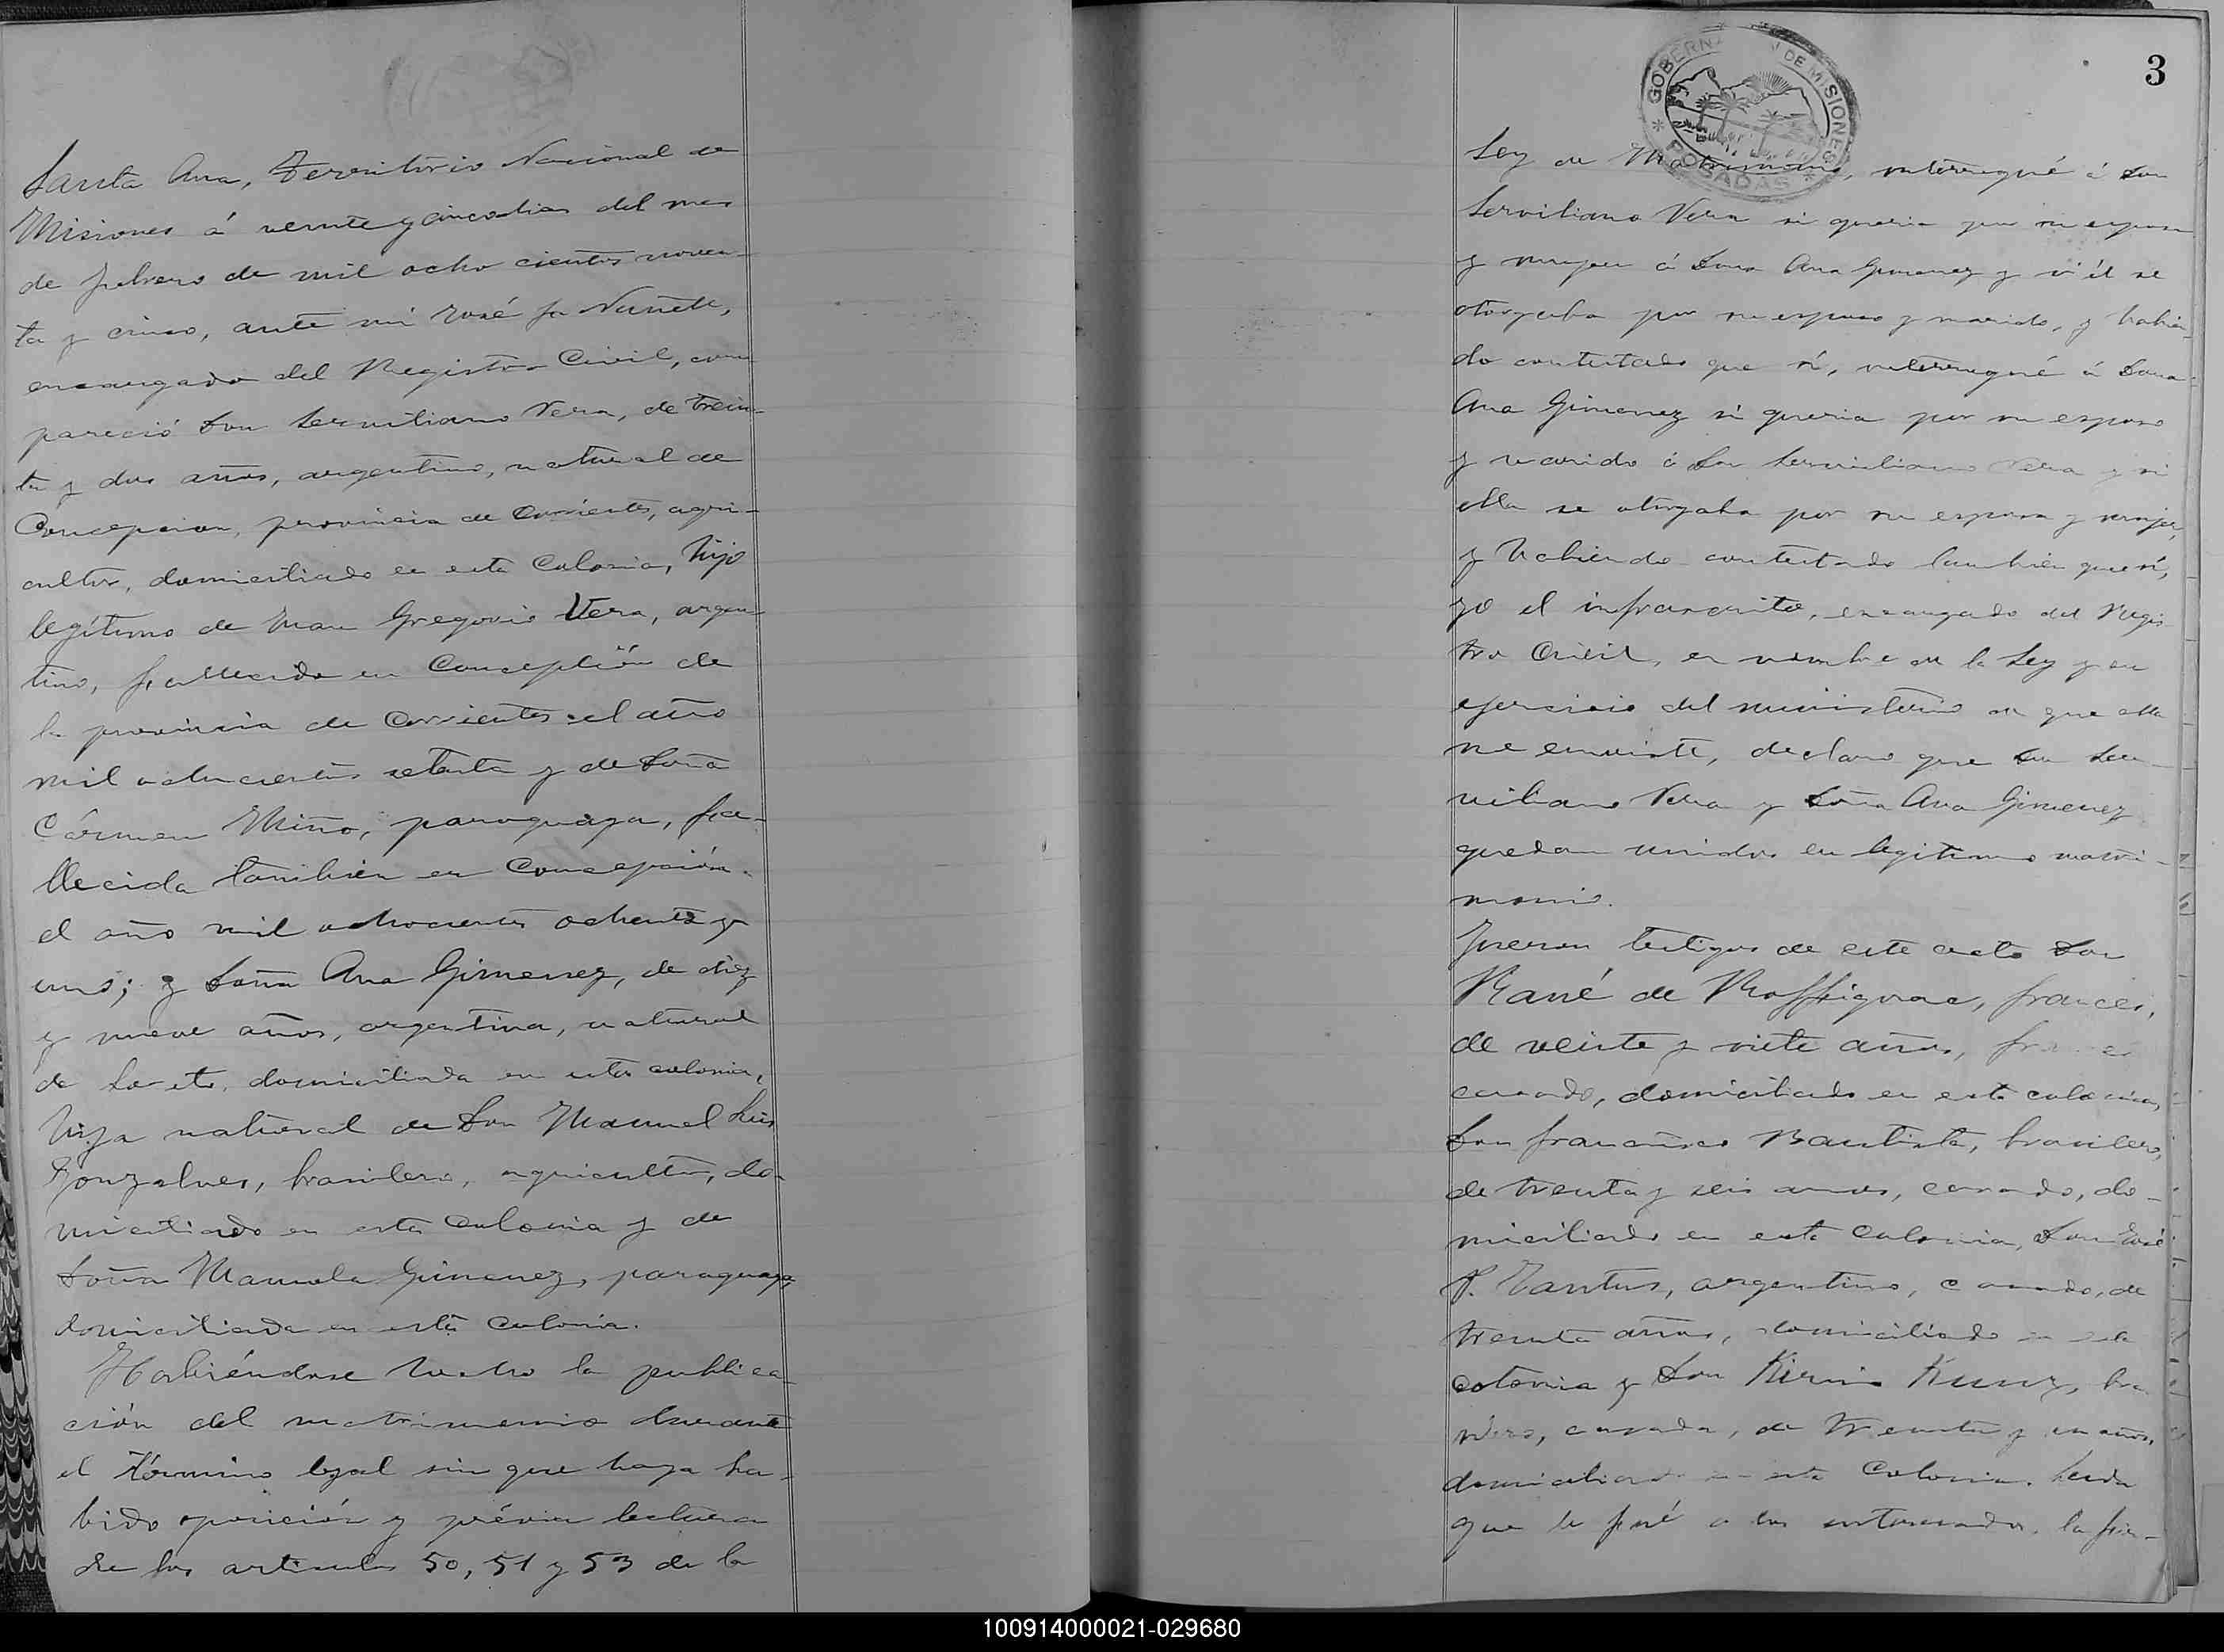 Santa Ana, Territorio Nacional de
Misiones á veinte y cinco dias del mes
de febrero de mil ocho cientos noven-
ta y cinco, ante mi José
encargado del Registro Civil, com-
pareció Don Serviliano Vera, de trein-
ta y dos años, argentino, natural de
Concepcion, provincia de Corrientes, agri-
cultor, domiciliado en esta Colonia, hijo
legítimo de Juan Gregorio Vera, argen-
tino, fallecido en Concepción de
la provincia de Corrientes el año
mil ochocientos setenta y de Doña
Cármen Miño, paraguaya, fa-
llecida tambien en Concepción
el año mil ochocientos ochenta y
uno; y Doña Ana Gimenez, de diez
y nueve años, argentina, natural
de Loreto, domiciliada en esta colonia,
hija natural de Don Manuel Luis
Gonzalves, brasilero, agricultor, do-
miciliado en esta Colonia y de
Doña Manuela Gimenez, paraguaya,
domiciliada en esta Colonia.
Habiéndose hecho la publica-
ción del matrimonio durante
el término legal sin que haya ha-
bido oposición y prévia lectura
de los articulos 50, 51 y 53 de la
GOBERN DE MISIONES
* POSADAS *
3
Ley de Matrimonio, interrogué á Don
Serviliano Vera si queria por su esposa
y mujer á Doña Ana Gimenez y si él se
otorgaba por su esposo y marido, y habien-
do contestado que sí, interrogué á Doña
Ana Gimenez si queria por su esposo
y marido á Don Serviliano Vera y si
ella se otorgaba por su esposa y mujer,
y habiendo contestado tambien que sí,
yo el infrascrito, encargado del Regis-
tro Civil, en nombre de la Ley y en
ejercicio del ministerio de que ella
me enviste, declaro que Don Ser-
viliano Vera y Doña Ana Gimenez
quedan unidos en legitimo matri-
monio.
Fueron testigos de este acto Don
René de Roffignac, francés,
de veinte y siete años,
casado, domiciliado en esta colonia,
Don Francisco Bautista, brasilero,
de treinta y seis años, casado, do-
miciliado en esta Colonia, Don José
P. argentino, casado, de
treinta años, domiciliado en esta
colonia y Don Kunz, bra-
silero, casado, de treinta y un años,
domiciliado en esta Colonia. Leida
que le fué a los interesados, la fir-
100914000021-029680